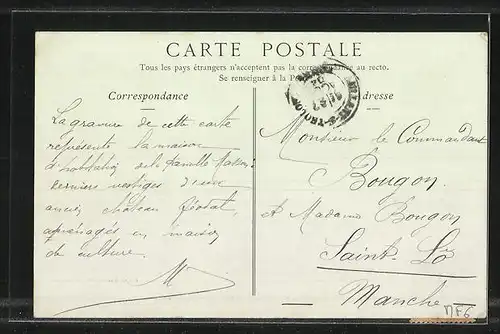 CARTE POSTALE
Tous les pays étrangers n'acceptent pas la correspondance au recto.
Se renseigner à la P
Correspondance
dresse
La gravure de cette carte
représente la maison
d'habitation de la famille
derniers vestiges d'un
ancien château féodal
aménagés en maison
de culture.
M
Monsieur le Commandant
Bougon
et Madame Bougon
Saint-Lô
Manche